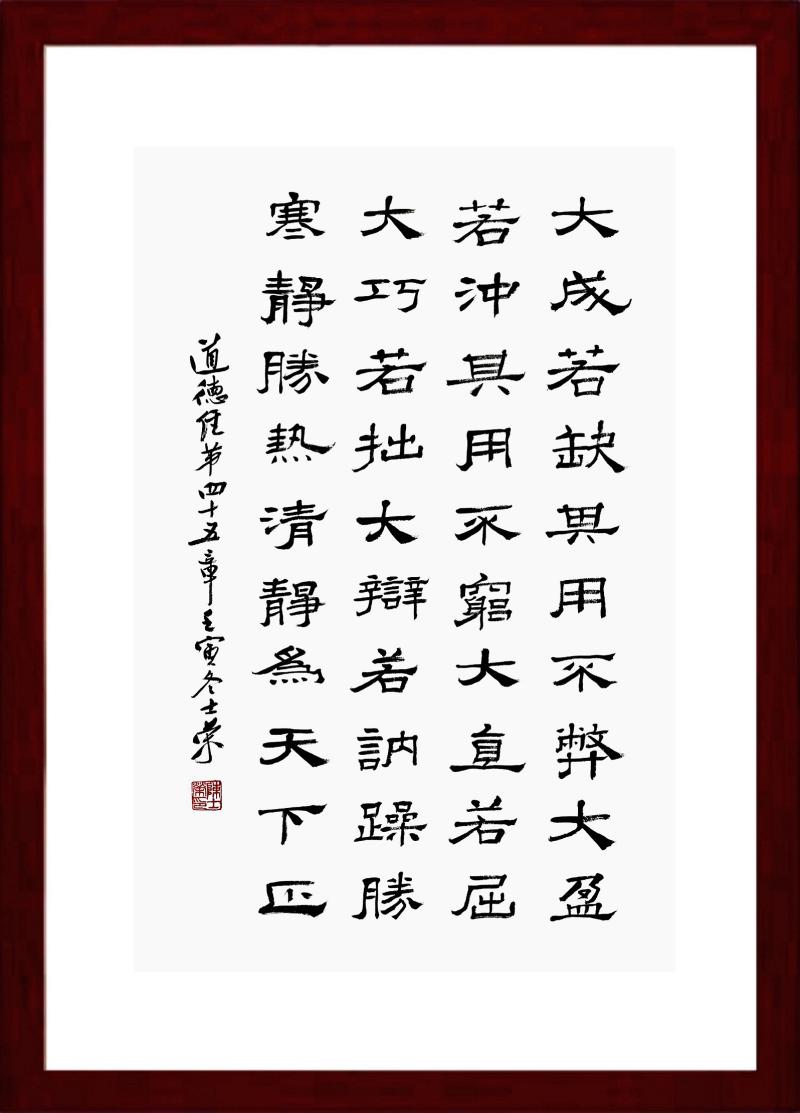 大成若缺其用不弊大盈
若沖其用不窮大直若屈
大巧若拙大辯若訥躁勝
寒靜勝熱清靜為天下正
道德经第四十五章壬寅冬士荣
陳士榮印